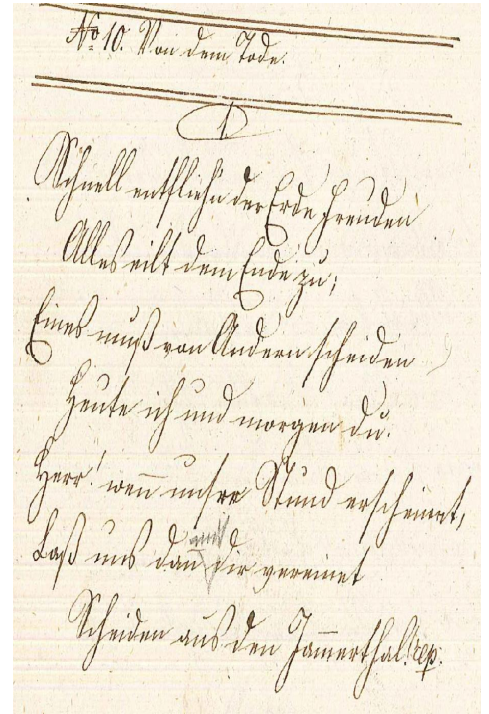 No 10. Von dem Tode.
1.
Schnell entfliehn der Erde Freuden
Alles eilt dem Ende zu;
Eines muß von Andern scheiden
Heute ich und morgen du.
Herr! wen̄ unsre Stund erscheinet,
mit
Laß uns dan̄ dir vereinet
Scheiden aus den Jam̄erthal. rep.